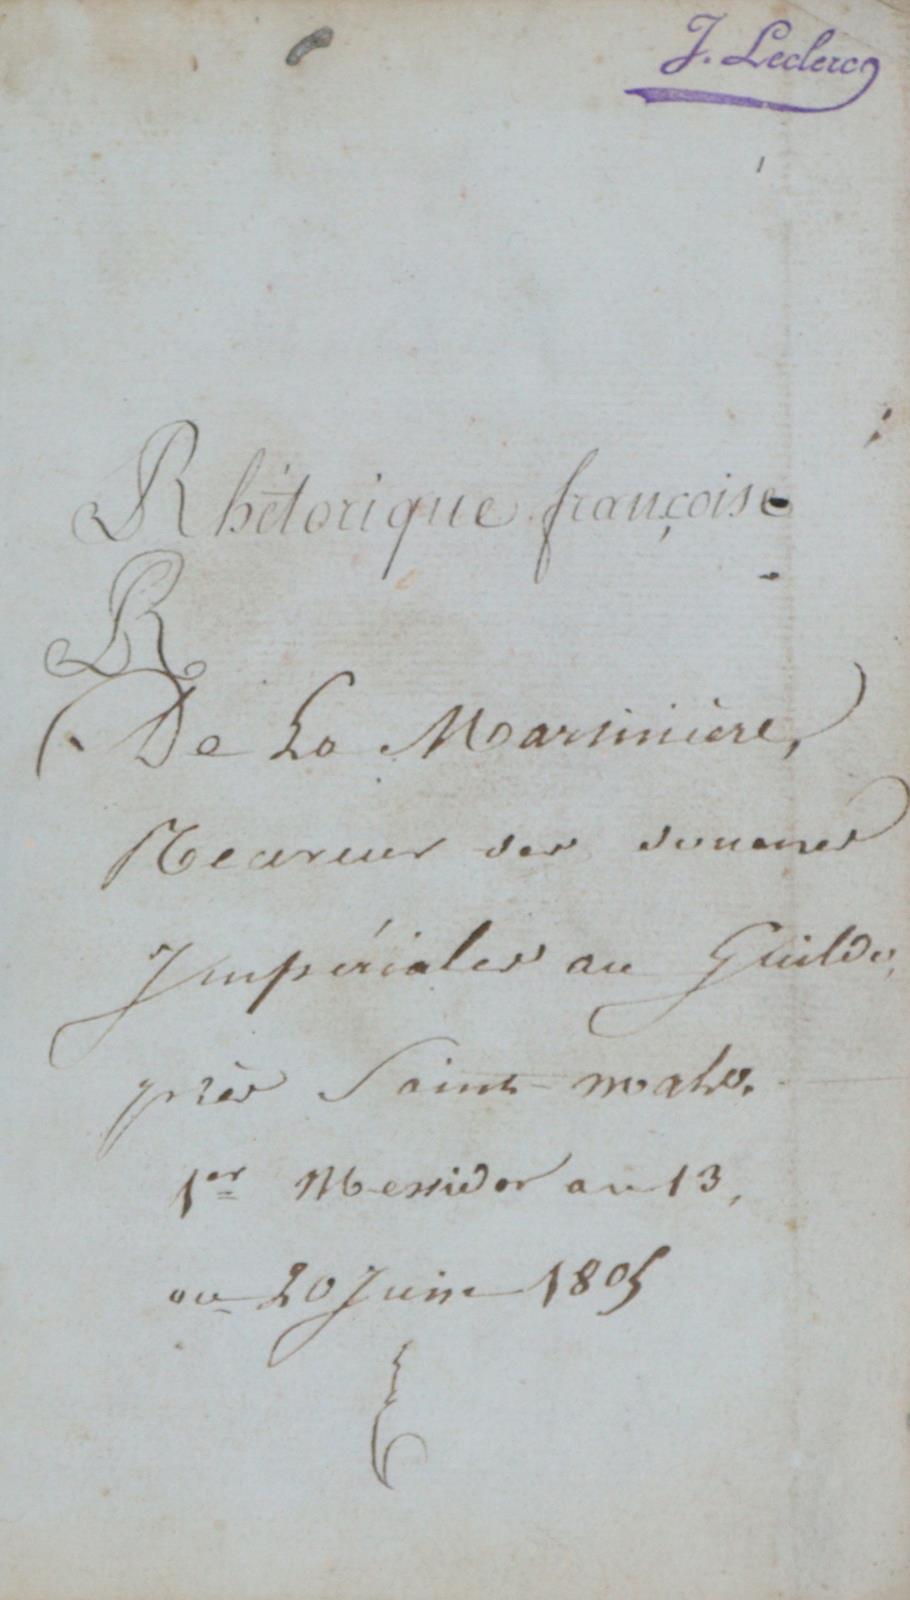 J. Leclerc
Rhétorique françoise
R
De La Marsinière,
Receveur des douanes
Impériales au Guildo,
près Saint-malo.
1er Messidor an 13,
ou 20 Juin 1805